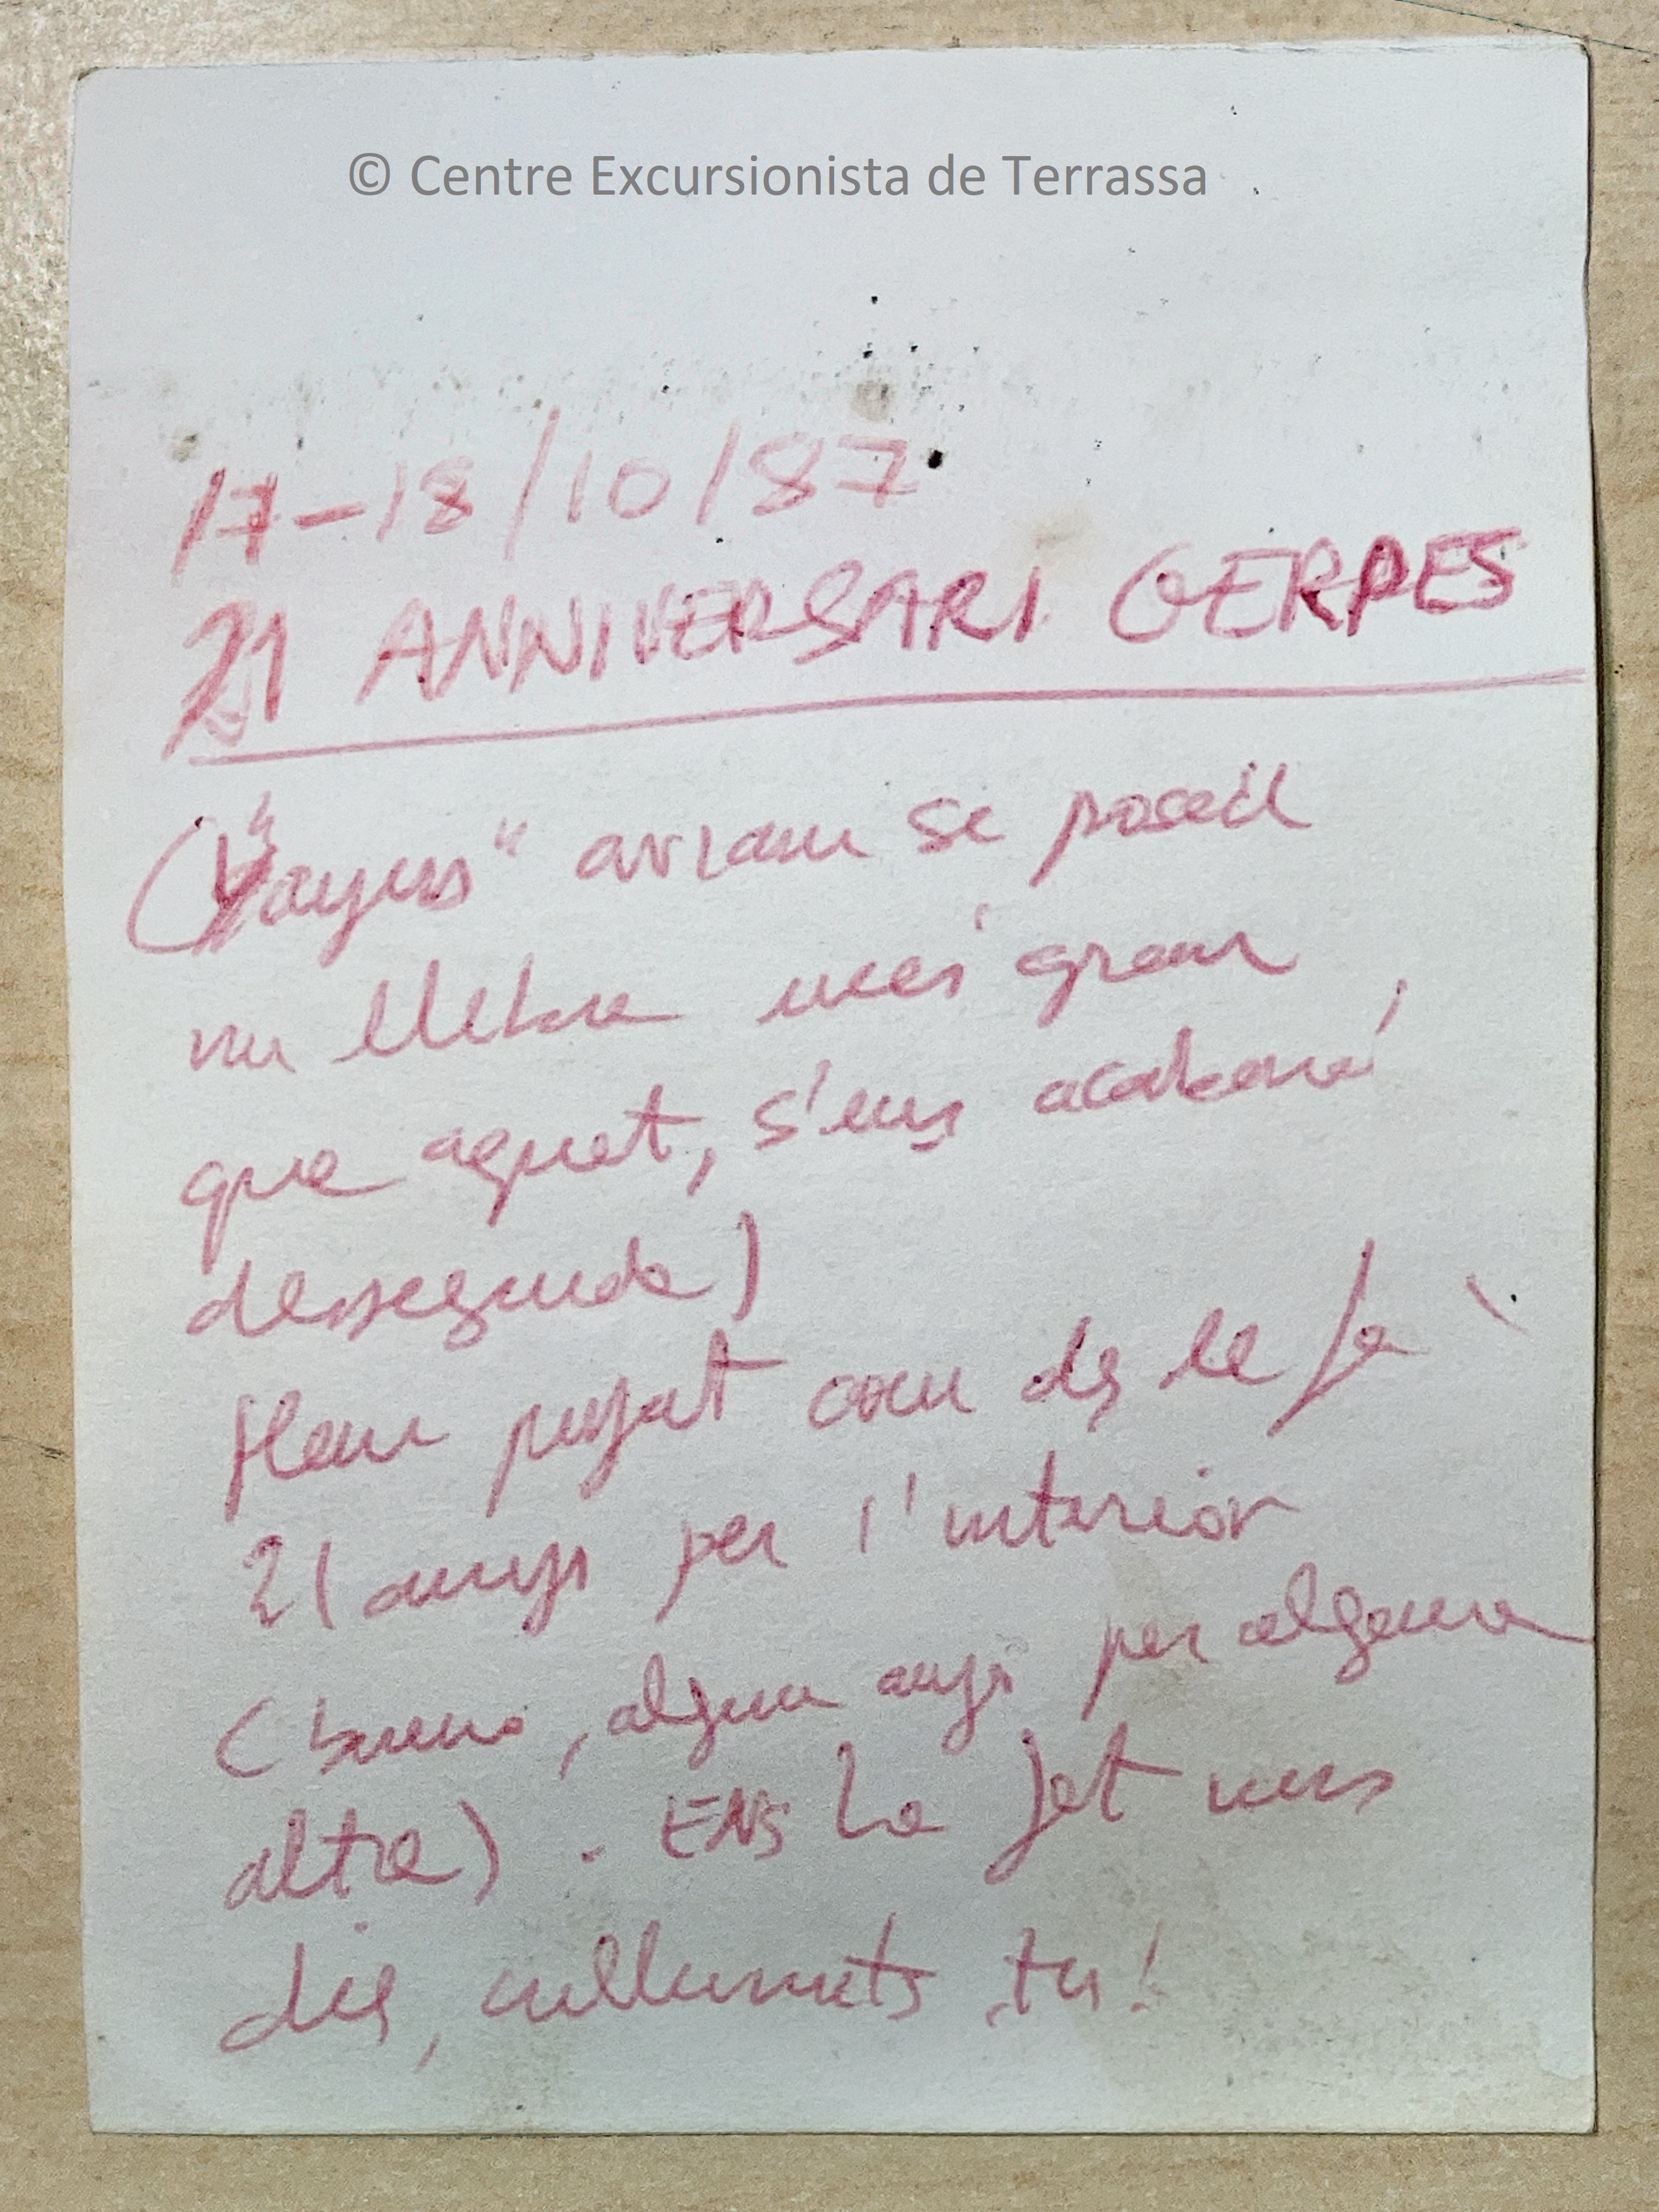 © Centre Excursionista de Terrassa
17-18/10/87
21 ANNIVERSARI GERPES
("Yayus" aviam se poseu
una lletra més gran
que aquet, s'ens acabarà
desseguida)
Hem pujat com de fa
21 anys per l'interior
(bueno, algun anys per alguna
altre). ENS ha fet uns
dies, collunuts tu!